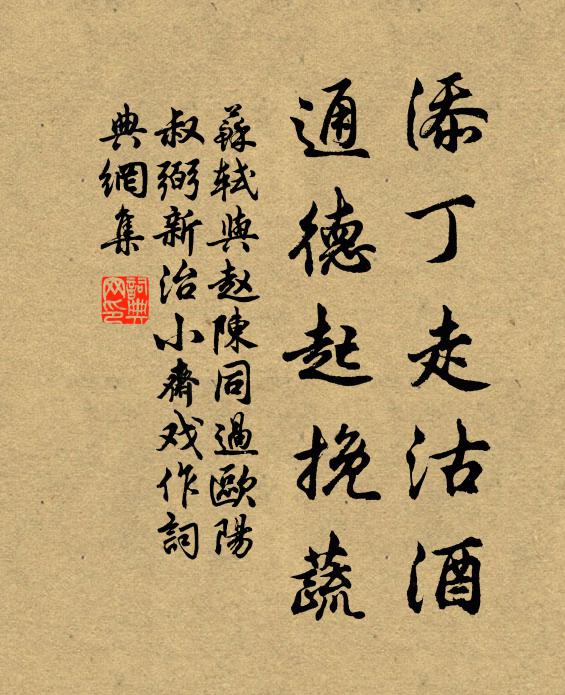 添丁走沽酒
通德起挽蔬
蘇軾與赵陳同過歐陽
叔弼新治小齋戏作詞
典網集
詞典
网印